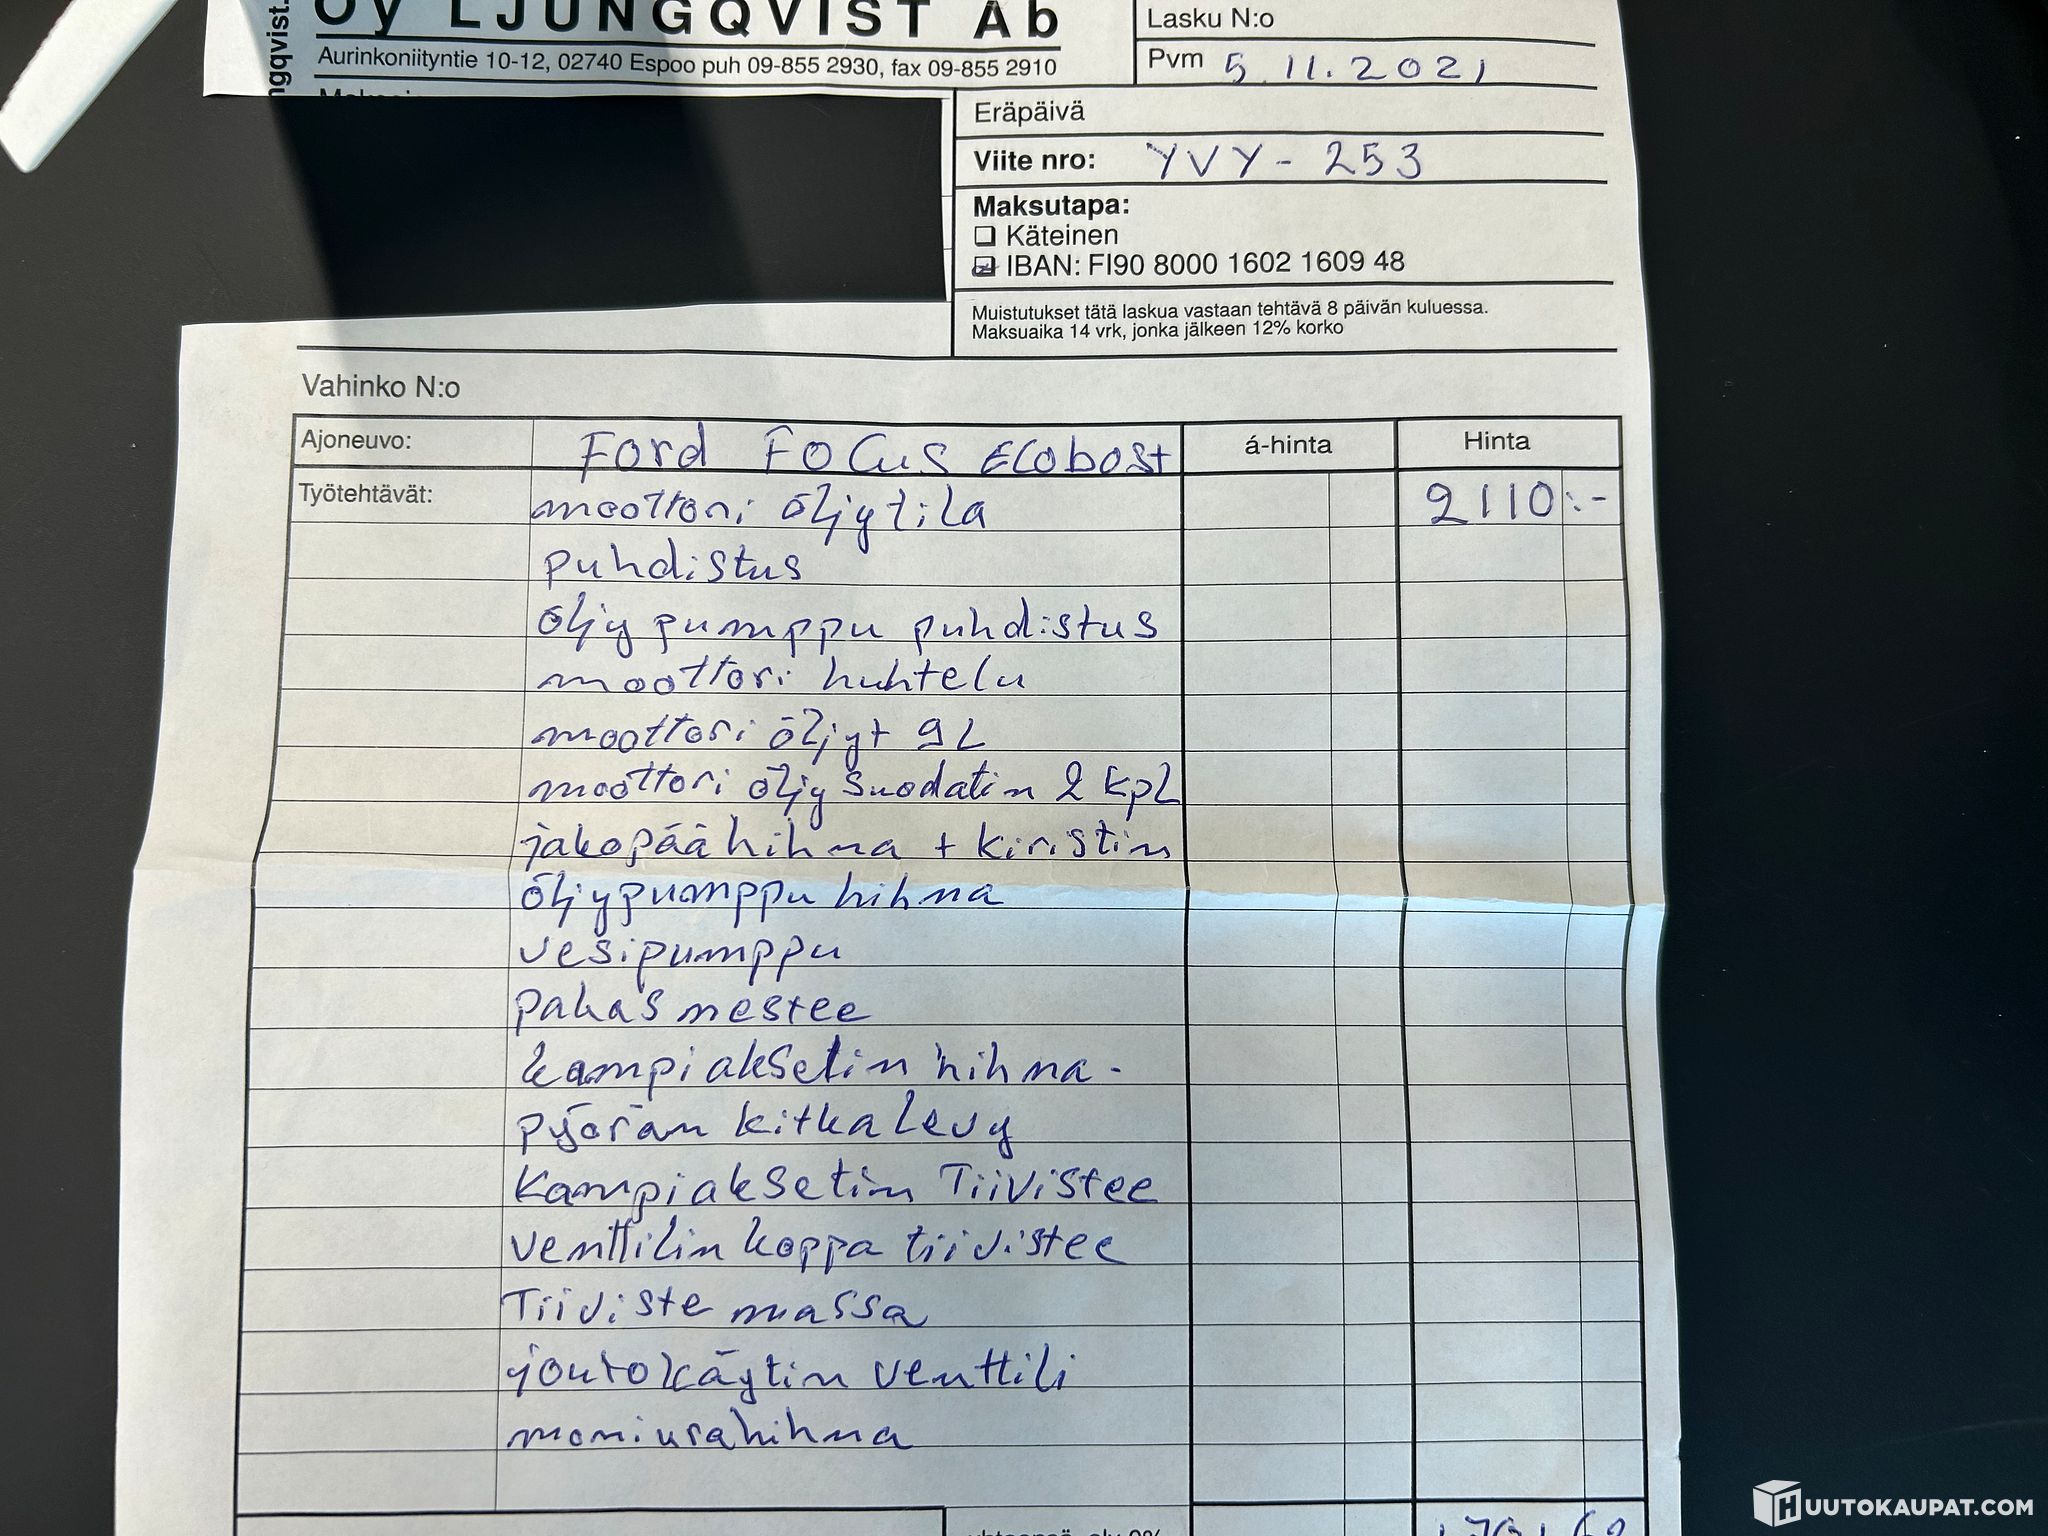 Oy LJUNGQVIST Ab
ngqvist.
Aurinkoniityntie 10-12, 02740 Espoo puh 09-855 2930, fax 09-855 2910
Lasku N:o
Pvm 5.11.2021
Eräpäivä
Viite nro: YVY-253
Maksutapa:
Käteinen
IBAN: FI90 8000 1602 1609 48
Muistutukset tätä laskua vastaan tehtävä 8 päivän kuluessa.
Maksuaika 14 vrk, jonka jälkeen 12% korko
Vahinko N:o
Ajoneuvo: Ford Focus Ecobost á-hinta Hinta
Työtehtävät: moottori öljytila 2110:-
puhdistus
öljy pumppu puhdistus
moottori huhtelu
moottori öljyt 9L
moottori öljy suodatin 2 kpl
jakopää hihna + kiristin
öljypumppu hihna
vesipumppu
pakas nestee
kampiakselin hihna-
pyörän kitkalevy
Kampiakselin Tiivistee
venttilin koppa tiivistee
Tiiviste massa
joutokäytin venttili
moniurahihna
HUUTOKAUPAT.COM